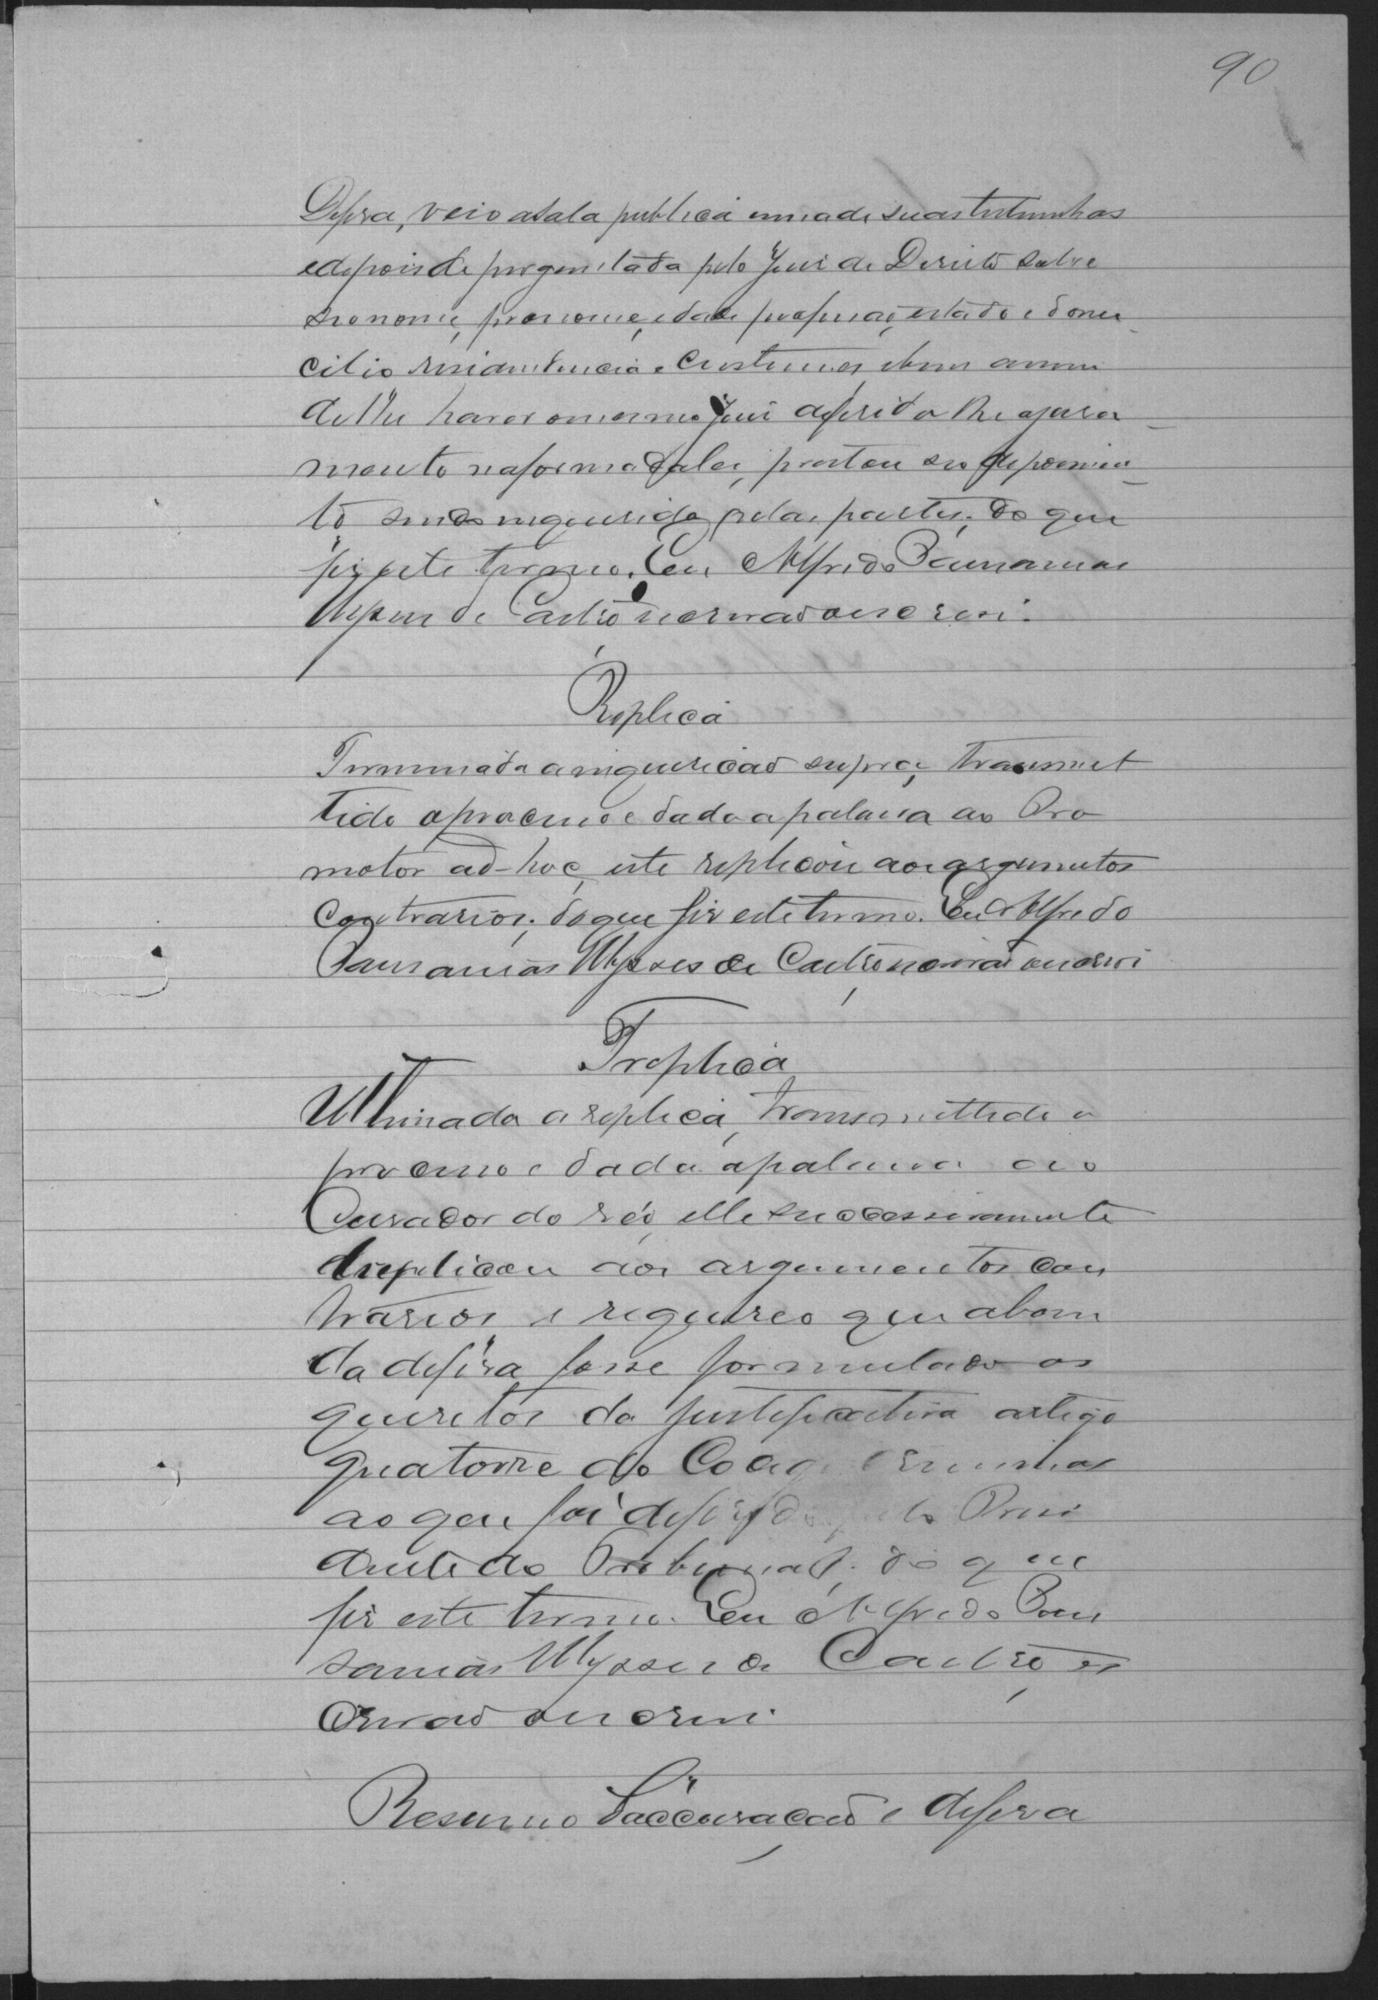 90
Defesa, veio a sala publica uma de suas testemunhas
e depois de perguntada pelo Juiz de Direito sobre
seo nome, pronome, edade profissão, estado e domi-
cilio residencia e costumes, e bem assim
de lhe haver o mesmo Juiz deferido o jura-
mento na forma da lei, prestou seo depoimen-
to sendo inquerida pelas partes; do que
fiz este termo. Eu Alfredo Pausanias
Ulysses de Castro escrivão escrevi.
Replica
Terminada a inquerição supra, transmet
tido o processo e dada a palavra ao Pro
motor ad-hoc, este replicou aos argumentos
contrarios; do que fiz este termo. Eu Alfredo
Pausanias Ulysses de Castro escrivão escrevi
Treplica
Ultimada a replica, transmettido o
processo e dada a palavra ao
Curador do réo, elle successivamente
treplicou aos argumentos con
trarios e requereo que a bem
da defesa fosse formulado os
quesitos da justificativa artigo
quatorze do Codigo Criminal
ao que foi deferido pelo Presi
dente do Tribunal; do que
fiz este termo. Eu Alfredo Pau
sanias Ulysses de Castro es
crivão escrevi.
Resumo d'accusação e defesa